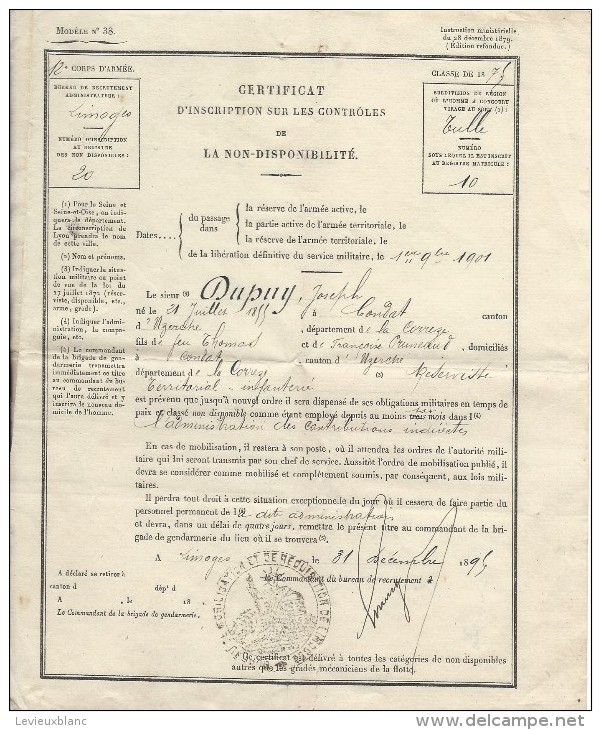 MODÈLE N° 38.
Instruction ministérielle
du 28 décembre 1879.
(Édition refondue.)
12e CORPS D'ARMÉE.
BUREAU DE RECRUTEMENT
ADMINISTRATEUR :
Limoges
NUMÉRO D'INSCRIPTION
AU REGISTRE
DES NON DISPONIBLES :
20
CERTIFICAT
D'INSCRIPTION SUR LES CONTRÔLES
DE
LA NON-DISPONIBILITÉ.
CLASSE DE 1875
SUBDIVISION DE RÉGION
OÙ L'HOMME A CONCOURU
TIRAGE AU SORT (1) :
Tulle
NUMÉRO
SOUS LEQUEL IL EST INSCRIT
AU REGISTRE MATRICULE :
10
(1) Pour la Seine et
Seine-et-Oise, on indi-
quera le département.
La circonscription de
Lyon prendra le nom
de cette ville.
(2) Nom et prénoms.
(3) Indiquer la situa-
tion militaire au point
de vue de la loi du
27 juillet 1872 (réser-
viste, disponible, etc.,
arme, grade).
(4) Indiquer l'admi-
nistration, la compa-
gnie, etc.
(5) Le commandant
de la brigade de gen-
darmerie transmettra
immédiatement ce titre
au commandant du bu-
reau de recrutement
qui l'aura délivré et y
inscrira le nouveau do-
micile de l'homme.
Dates....
du passage
dans
la réserve de l'armée active, le
la partie active de l'armée territoriale, le
la réserve de l'armée territoriale, le
de la libération définitive du service militaire, le 1er 9bre 1901
Le sieur (2) Dupuy, Joseph
né le 21 Juillet 1855 à Condat canton
d'Uzerche, département de la Corrèze
fils de feu Thomas et de Françoise Pruneaud, domiciliés
à Condat, canton d'Uzerche,
département de la Corrèze (3) Réserviste
Territorial - infanterie
est prévenu que jusqu'à nouvel ordre il sera dispensé de ses obligations militaires en temps de
paix et classé non disponible comme étant employé depuis au moins trois mois dans l(4)
l'administration des Contributions indirectes
En cas de mobilisation, il restera à son poste, où il attendra les ordres de l'autorité mili-
taire qui lui seront transmis par son chef de service. Aussitôt l'ordre de mobilisation publié, il
devra se considérer comme mobilisé et complètement soumis, par conséquent, aux lois mili-
taires.
Il perdra tout droit à cette situation exceptionnelle du jour où il cessera de faire partie du
personnel permanent de la dite administration
et devra, dans un délai de quatre jours, remettre le présent titre au commandant de la bri-
gade de gendarmerie du lieu où il se trouvera (5).
A Limoges, le 31 décembre 1895
Le Commandant du bureau de recrutement
A déclaré se retirer à
canton d dép't d
A , le 18 .
Le Commandant de la brigade de gendarmerie.
Ce certificat est délivré à toutes les catégories de non disponibles
autres que les gradés mécaniciens de la flotte.
Levieuxblanc
www.delcampe.net